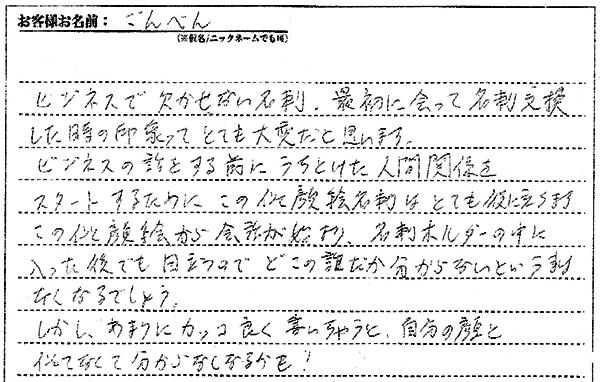 お客様お名前： ごんべん
(※仮名/ニックネームでも可)
ビジネスで欠かせない名刺、最初に会って名刺交換
した時の印象ってとても大変だと思います。
ビジネスの話をする前にうちとけた人間関係を
スタートするために この似顔絵名刺は とても役に立ちます
この似顔絵から会話が始まり、名刺ホルダーの中に
入った後でも目立つので どこの誰だか分からないという事
なくなるでしょう。
しかし、あまりにカッコ良く書いちゃうと、自分の顔と
似てなくて分からなくなるかも！